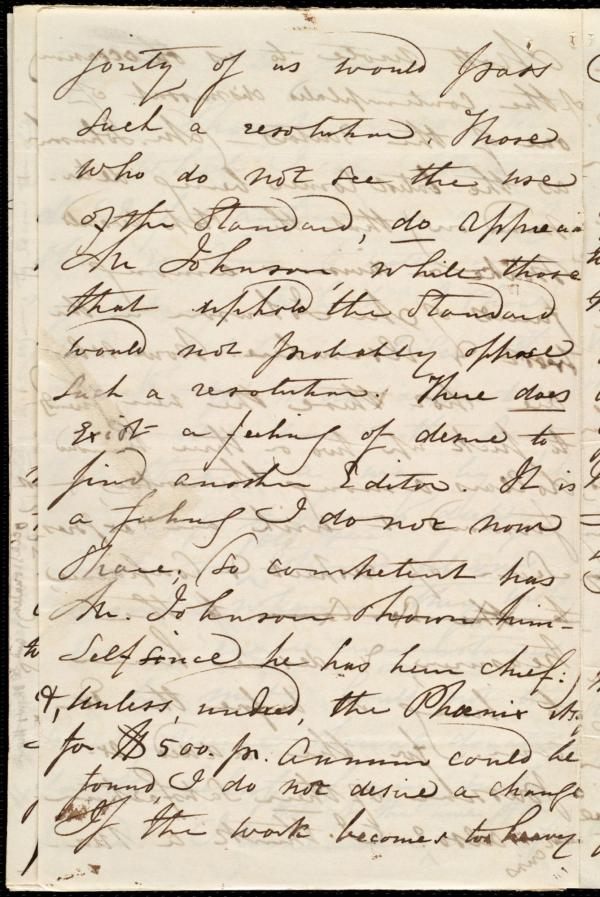 jority of us would pass
such a resolution. Those
who do not see the use
of the Standard, do
Mr Johnson, while those
that uphold the Standard
would not probably oppose
such a resolution. There does
exist a feeling of desire to
find another Editor. It is
a feeling I do not now
share; (so competent has
Mr. Johnson shown him-
self since he has been chief:)
&, unless, indeed, the Phœnix
for $500. pr. Annum could be
found, I do not desire a change
If the work becomes too heavy